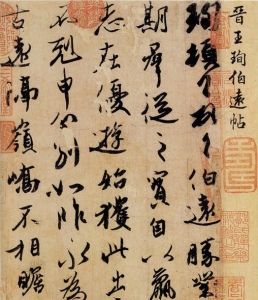 晋王珣伯远帖
珣頓首頓首伯遠勝業情
期群從之寶自以羸患
志在優遊始獲此出意
不剋申分別如昨永為疇
古遠隔嶺嶠不相瞻